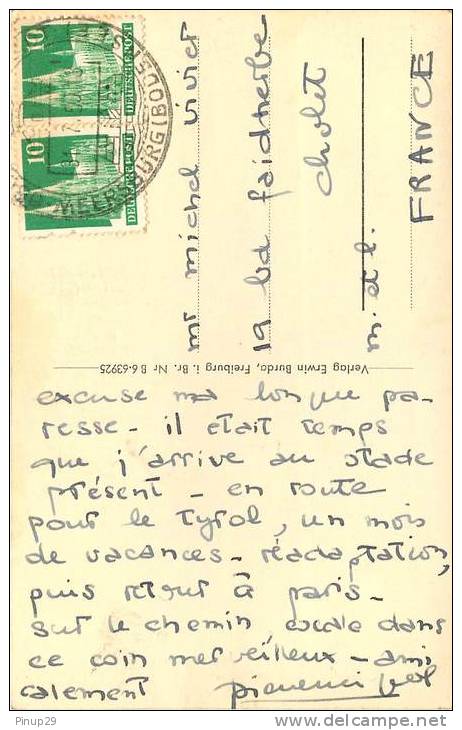 10
10
DEUTSCHE POST
DEUTSCHE POST
MEERSBURG (BODENSEE)
mr michel vivier
19 bd faidherbe
cholet
m. et l.
FRANCE
Verlag Erwin Burda, Freiburg i. Br. Nr B 6-63925
excuse ma longue pa-
resse - il était temps
que j'arrive au stade
présent - en route
pour le tyrol, un mois
de vacances - réadaptation,
puis retour à paris -
sur le chemin, escale dans
ce coin merveilleux - ami
calement
Pinup29
www.delcampe.net